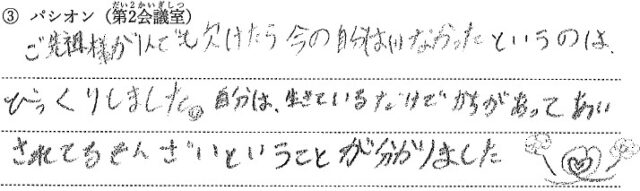 ③ パシオン（第2会議室）
だい2かいぎしつ
ご先祖様が1人でも欠けたら今の自分はいなかったというのは、
びっくりしました。自分は、生きているだけでかちがあってあい
されてるそんざいということが分かりました